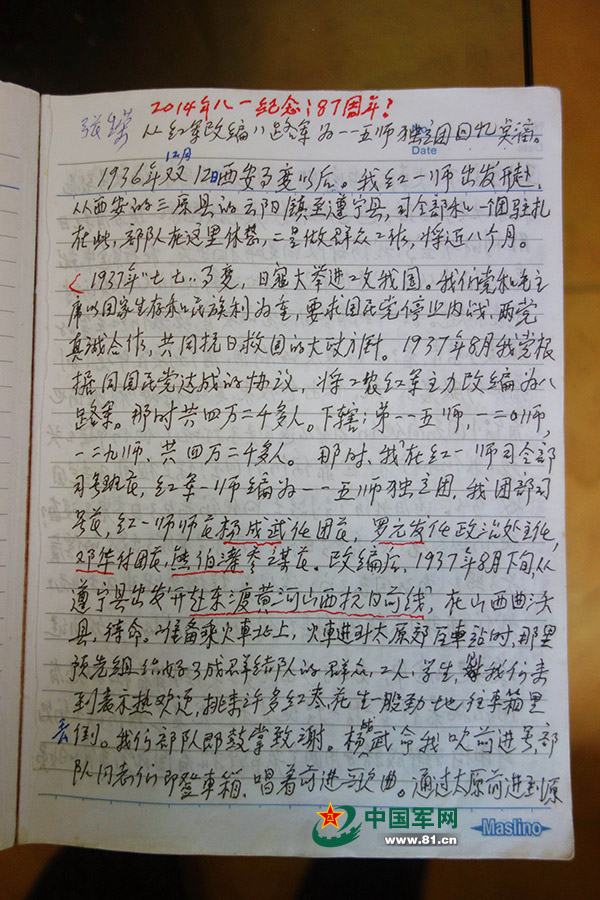 2014年八一纪念;87周年?
从红军改编八路军为一一五师独立团回忆实稿。
Date
12月
1936年双12日西安事变以后。我红一师出发开赴
从西安的三原县的云阳镇至遵宁县,司令部和一个团驻扎
在此,部队在这里休整,二是做群众工作,将近八个月。
1937年“七七”事变,日寇大举进攻我国。我们党和毛主
席以国家生存和民族利为重,要求国民党停止内战,两党
真诚合作,共同抗日救国的大政方针。1937年8月我党根
据同国民党达成的协议,将工农红军主力改编为八
路军。那时共四万二千多人。下辖:第一一五师,一二0师,
一二九师、共四万二千多人。那时、我在红一师司令部
司号班长,红军一师编为一一五师独立团,我团部司
号长,红一师师长杨成武任团长,罗元发任政治处主任,
邓华付团长,熊伯涛参谋长。改编后,1937年8月下旬,从
遵宁县出发开赴东渡黄河山西抗日前线,在山西曲沃
县,待命。准备乘火车北上,火车进入太原郊区车站时,那里
预先组织好了成群结队的群众,工人,学生,对我们来
到表示热欢迎,挑来许多红枣花生一股劲地往车箱里
去倒。我们部队即鼓掌致谢。杨成武命我吹前进号,部
队同志们即登车箱、唱着前进歌曲。通过太原前进到源
中国军网
www.81.cn
Maslino